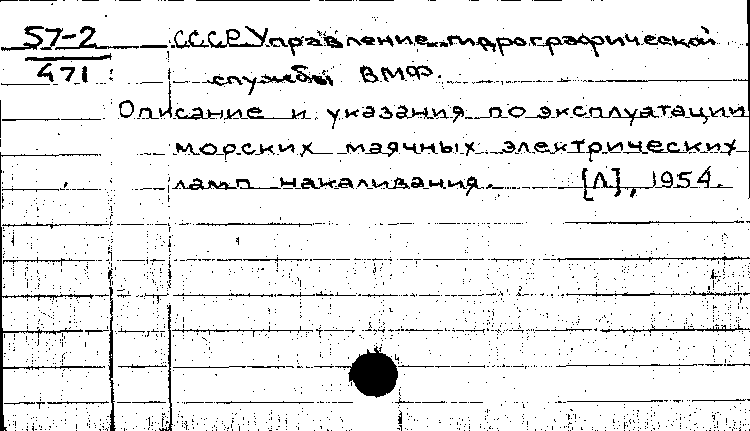 57-2 С.С.С.Р. Управление гидрографической
471 службы ВМФ.
Описание и указания по эксплуатации
морских маячных электрических
ламп накаливания. [Л], 1954.